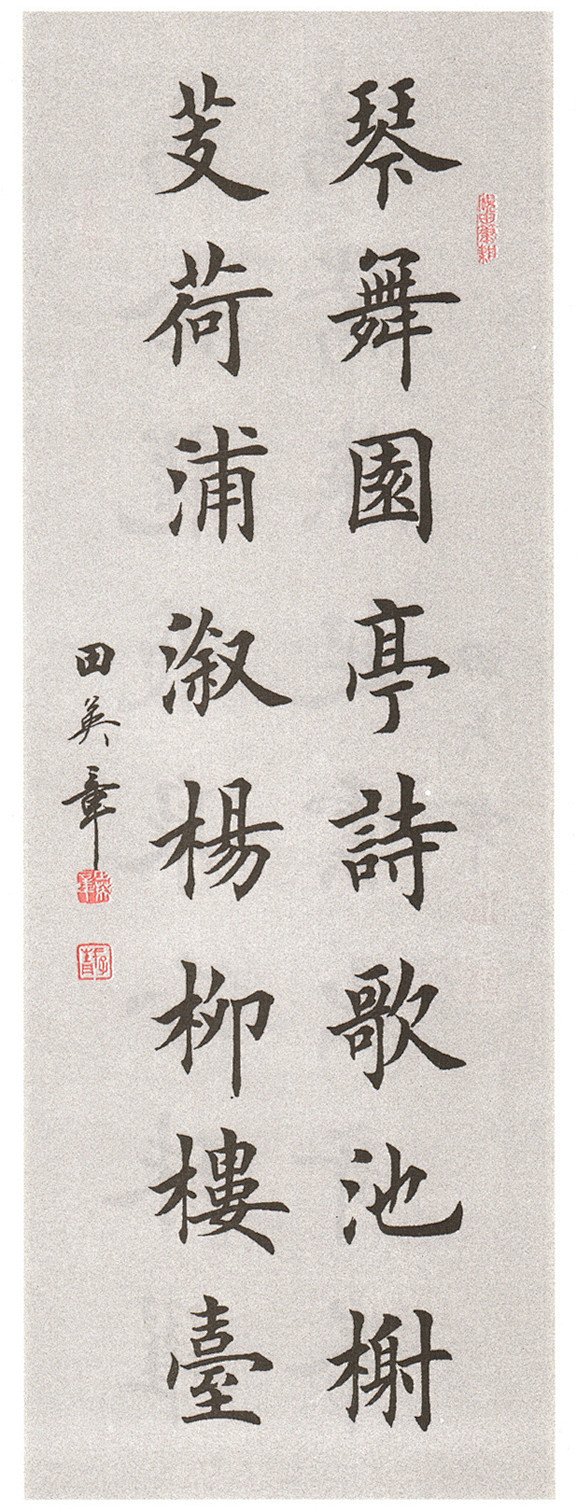 琴舞園亭詩歌池榭
芰荷浦溆楊柳樓臺
田英章